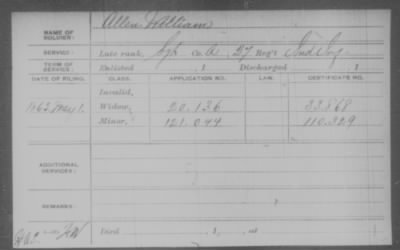 Allen William
NAME OF SOLDIER:
SERVICE: Late rank, Co. A, 27 Reg't Ind Inf.
TERM OF SERVICE: Enlisted , 1 Discharged , 1
DATE OF FILING. CLASS. APPLICATION NO. LAW. CERTIFICATE NO.
Invalid,
1863 May 1. Widow, 20.136 33.868
Minor, 121.049 110.329
ADDITIONAL SERVICES:
REMARKS:
Died , 1 , at